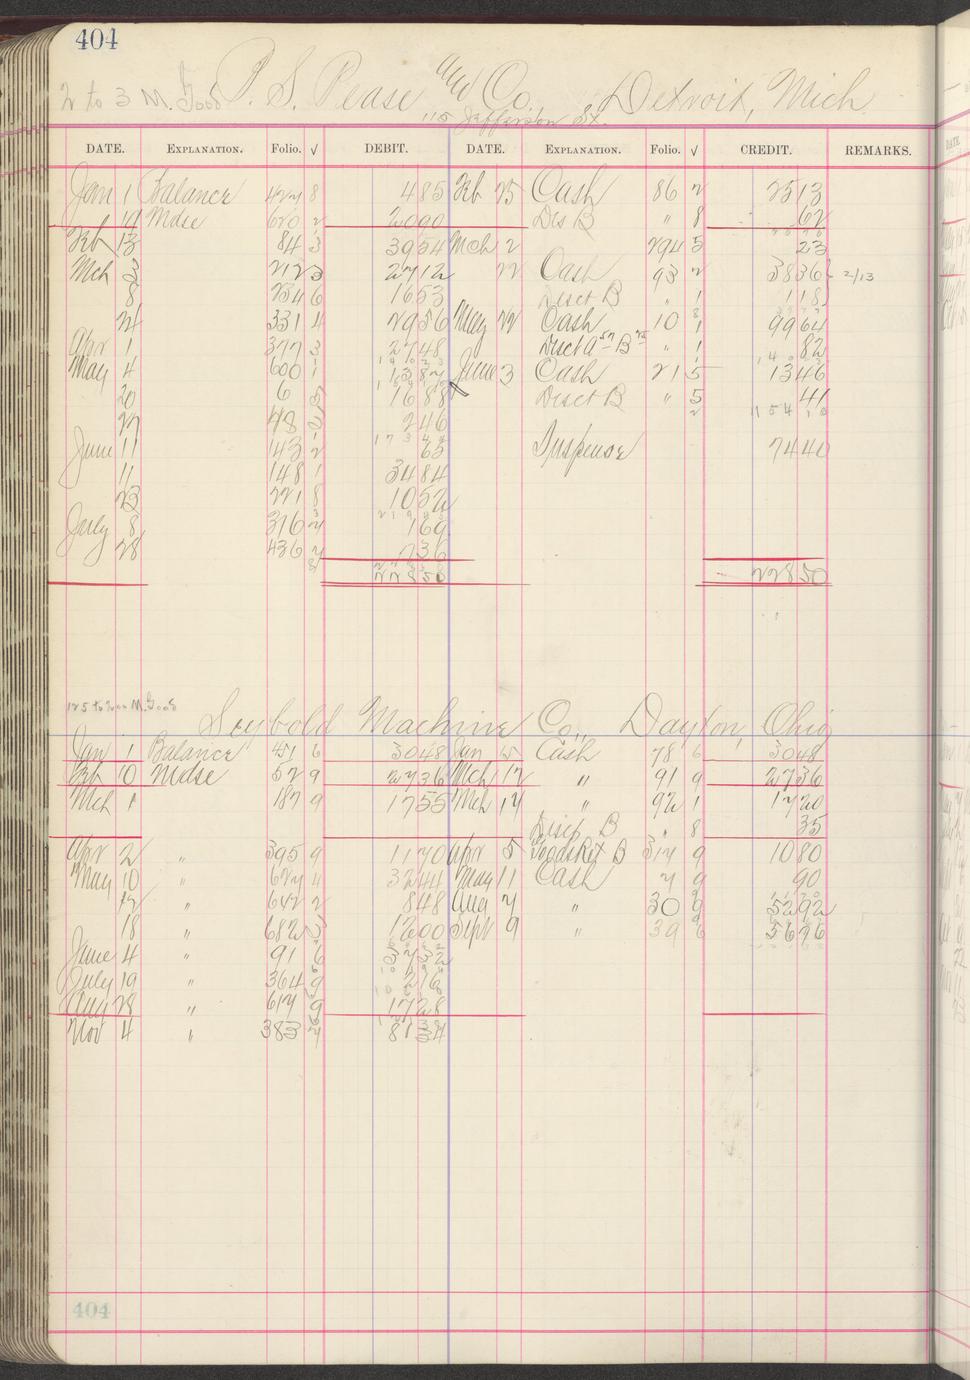 404
2 to 3 M. Good P. S. Pease and Co. Detroit, Mich
115 Jefferson St.
DATE. EXPLANATION. Folio. √ DEBIT. DATE. EXPLANATION. Folio. √ CREDIT. REMARKS.
Jan 1 Balance 427 8 485 Feb 25 Cash 86 2 2513
19 Mdse 620 2 2090 Dis B " 8 62
Feb 13 84 3 3954 Mch 2 294 5 23
Mch 3 212 3 2712 22 Cash 93 2 3836 2/13
8 254 6 1653 Disct B " 1 118
24 331 4 2956 May 22 Cash 10 1 9964
Apr 1 377 3 2748 Disct A B " 1 82
May 4 600 1 1387 June 3 Cash 21 5 1346
20 6 3 1688 Disct B " 5 41
27 48 246
June 11 143 2 63 Suspense 7440
11 148 1 3484
23 221 8 1052
July 8 316 2 169
28 436 2 736
22850 22850
125 to 200 M. Good
Seybold Machine Co., Dayton, Ohio
Jan 1 Balance 451 6 3048 Jan 5 Cash 78 6 3048
Feb 10 Mdse 529 2736 Mch 12 " 91 9 2736
Mch 1 187 9 1755 Mch 14 " 92 1 1720
Disct B " 8 35
Apr 2 " 395 9 1170 Apr 5 B 317 9 1080
May 10 " 627 4 3244 May 11 Cash 7 9 90
12 " 642 2 848 Aug 7 " 30 9 5292
18 " 682 3 1200 Sept 9 " 39 6 5696
June 4 " 91 6 3732
July 19 " 364 9 216
Aug 28 " 617 9 1728
Nov 4 " 383 7 8134
404